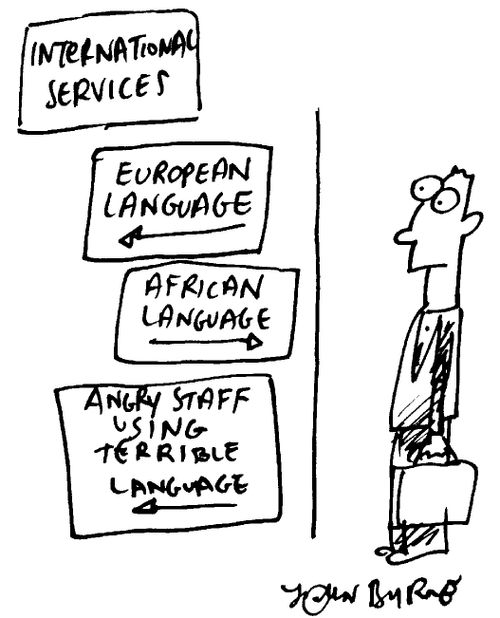 INTERNATIONAL
SERVICES
EUROPEAN
LANGUAGE
AFRICAN
LANGUAGE
ANGRY STAFF
USING
TERRIBLE
LANGUAGE
JOHN BYRNE